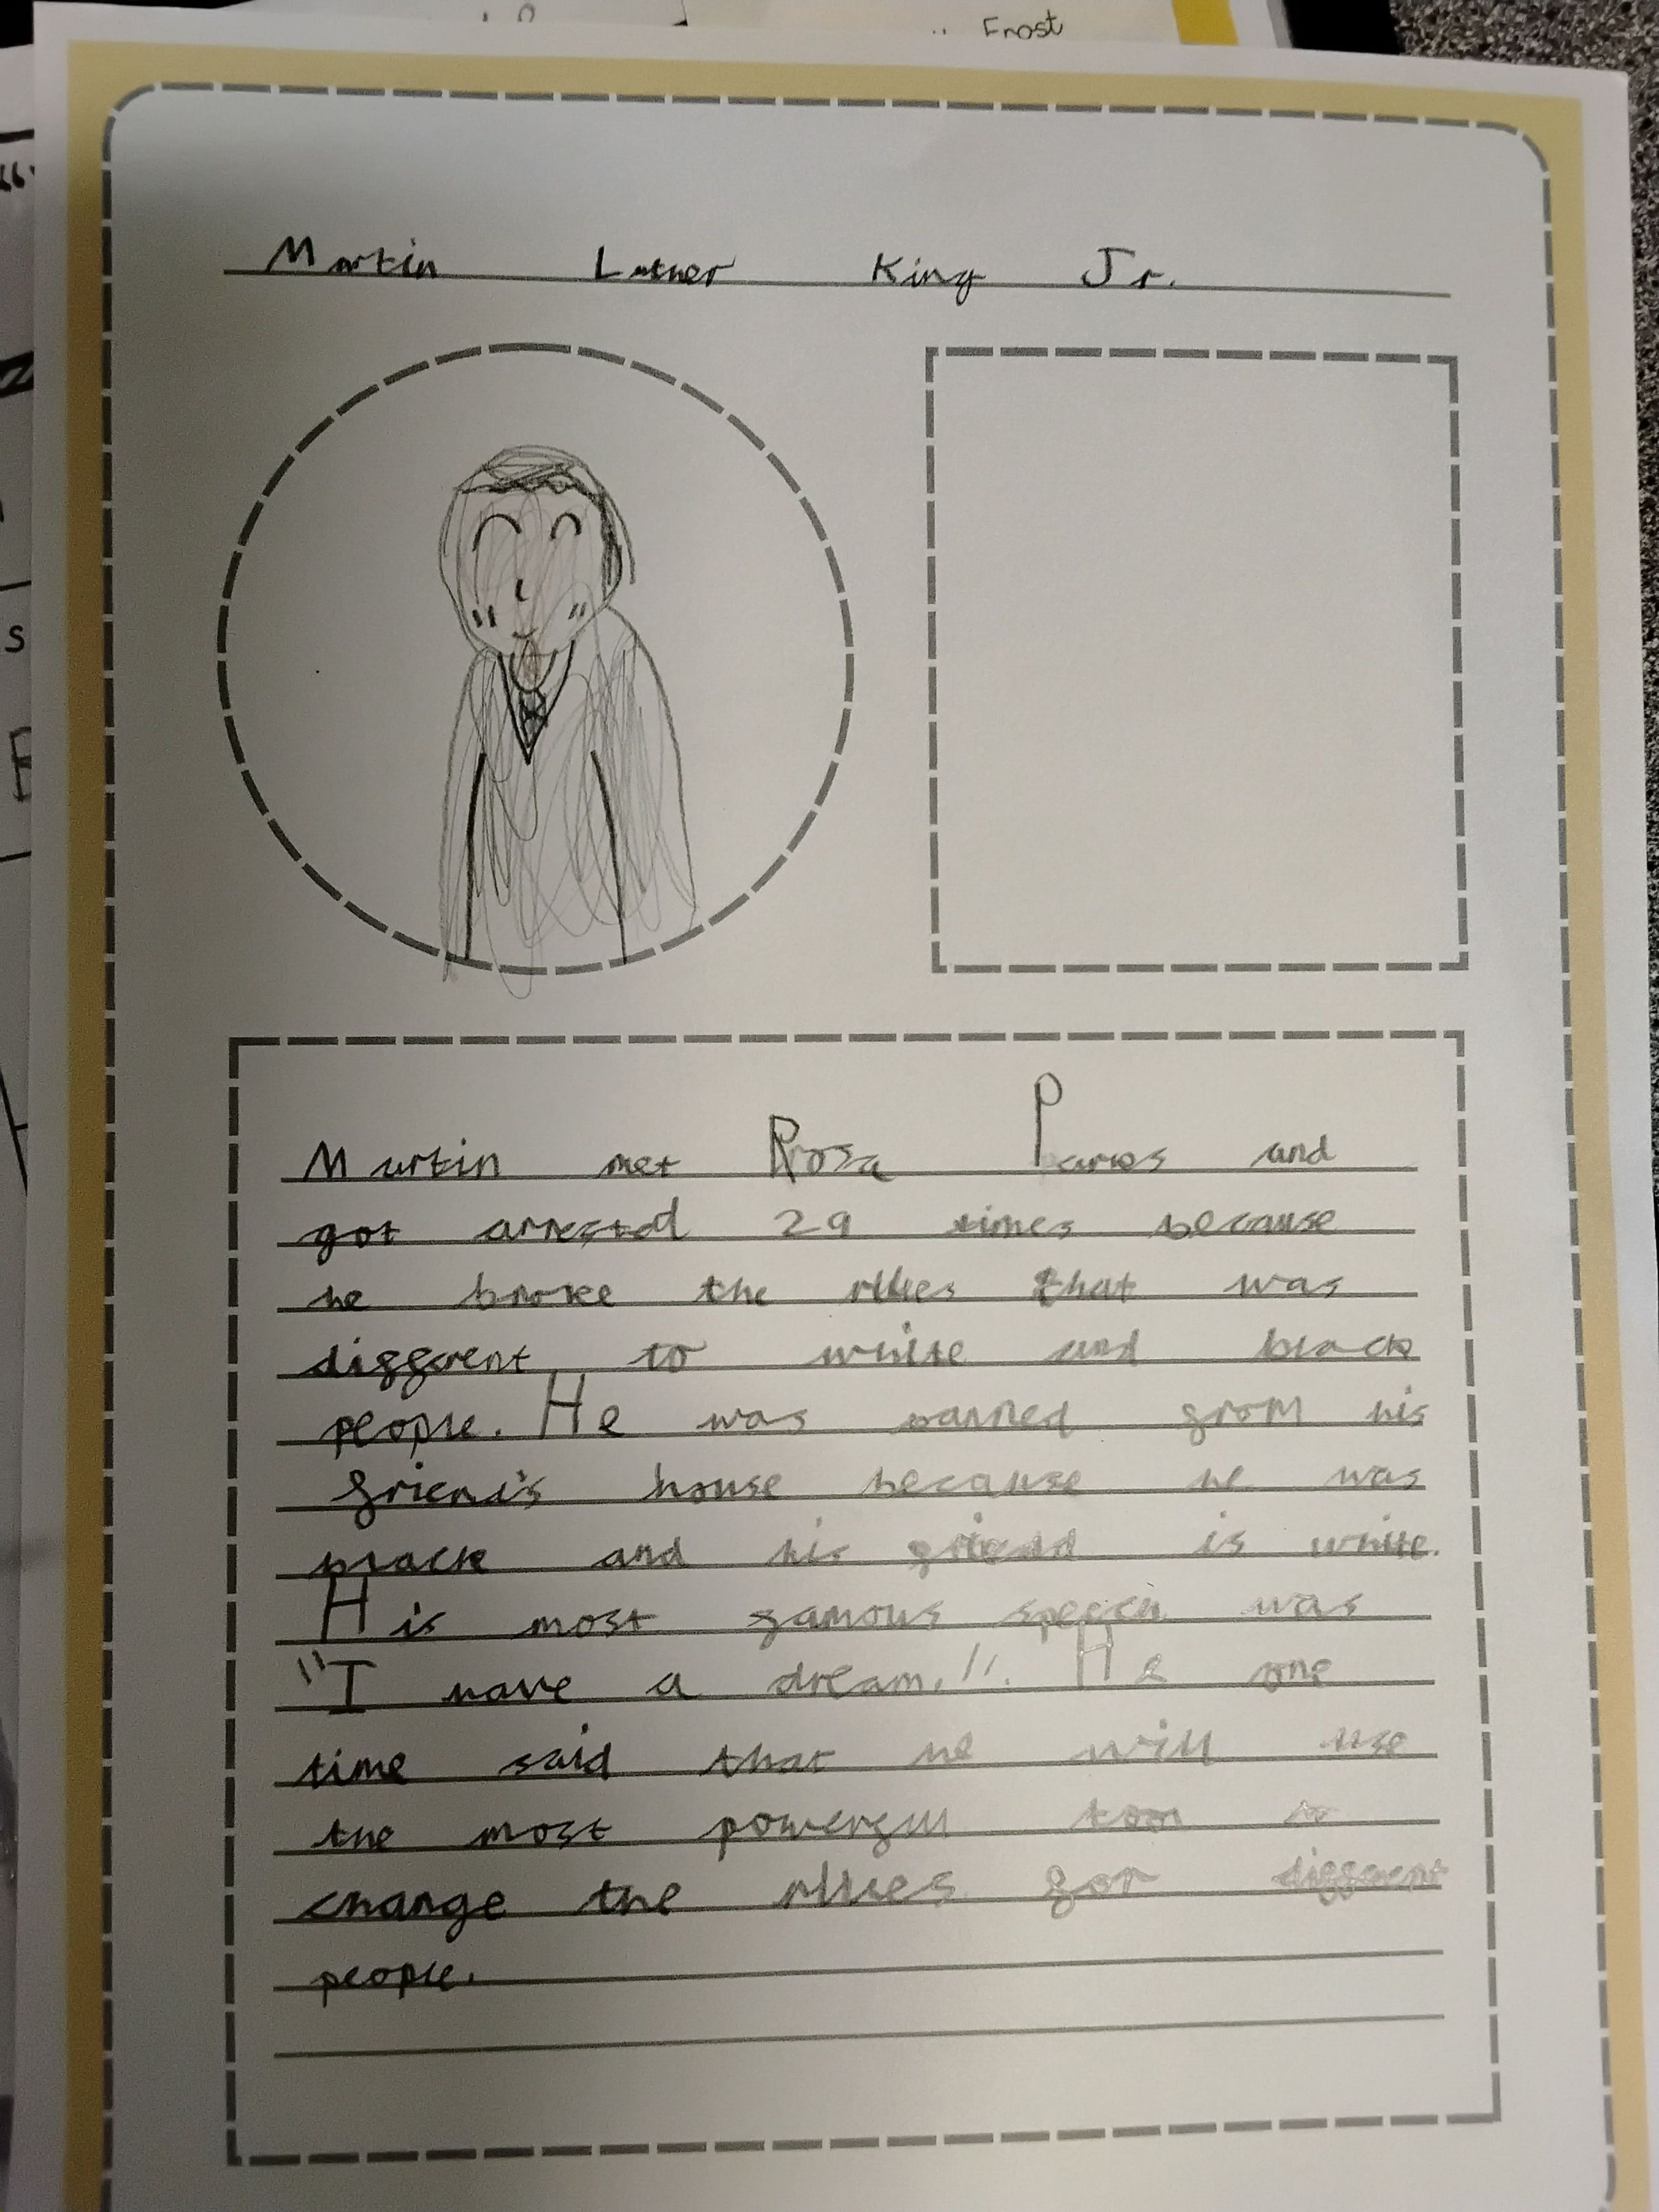 Frost
Martin Luther King Jr.
Martin met Rosa Parkes and
got arrested 29 times because
he broke the rules that was
different to white and black
people. He was banned from his
friend's house because he was
black and his friend is white.
His most famous speech was
"I have a dream.". He one
time said that he will use
the most powerful tool to
change the rules for different
people.